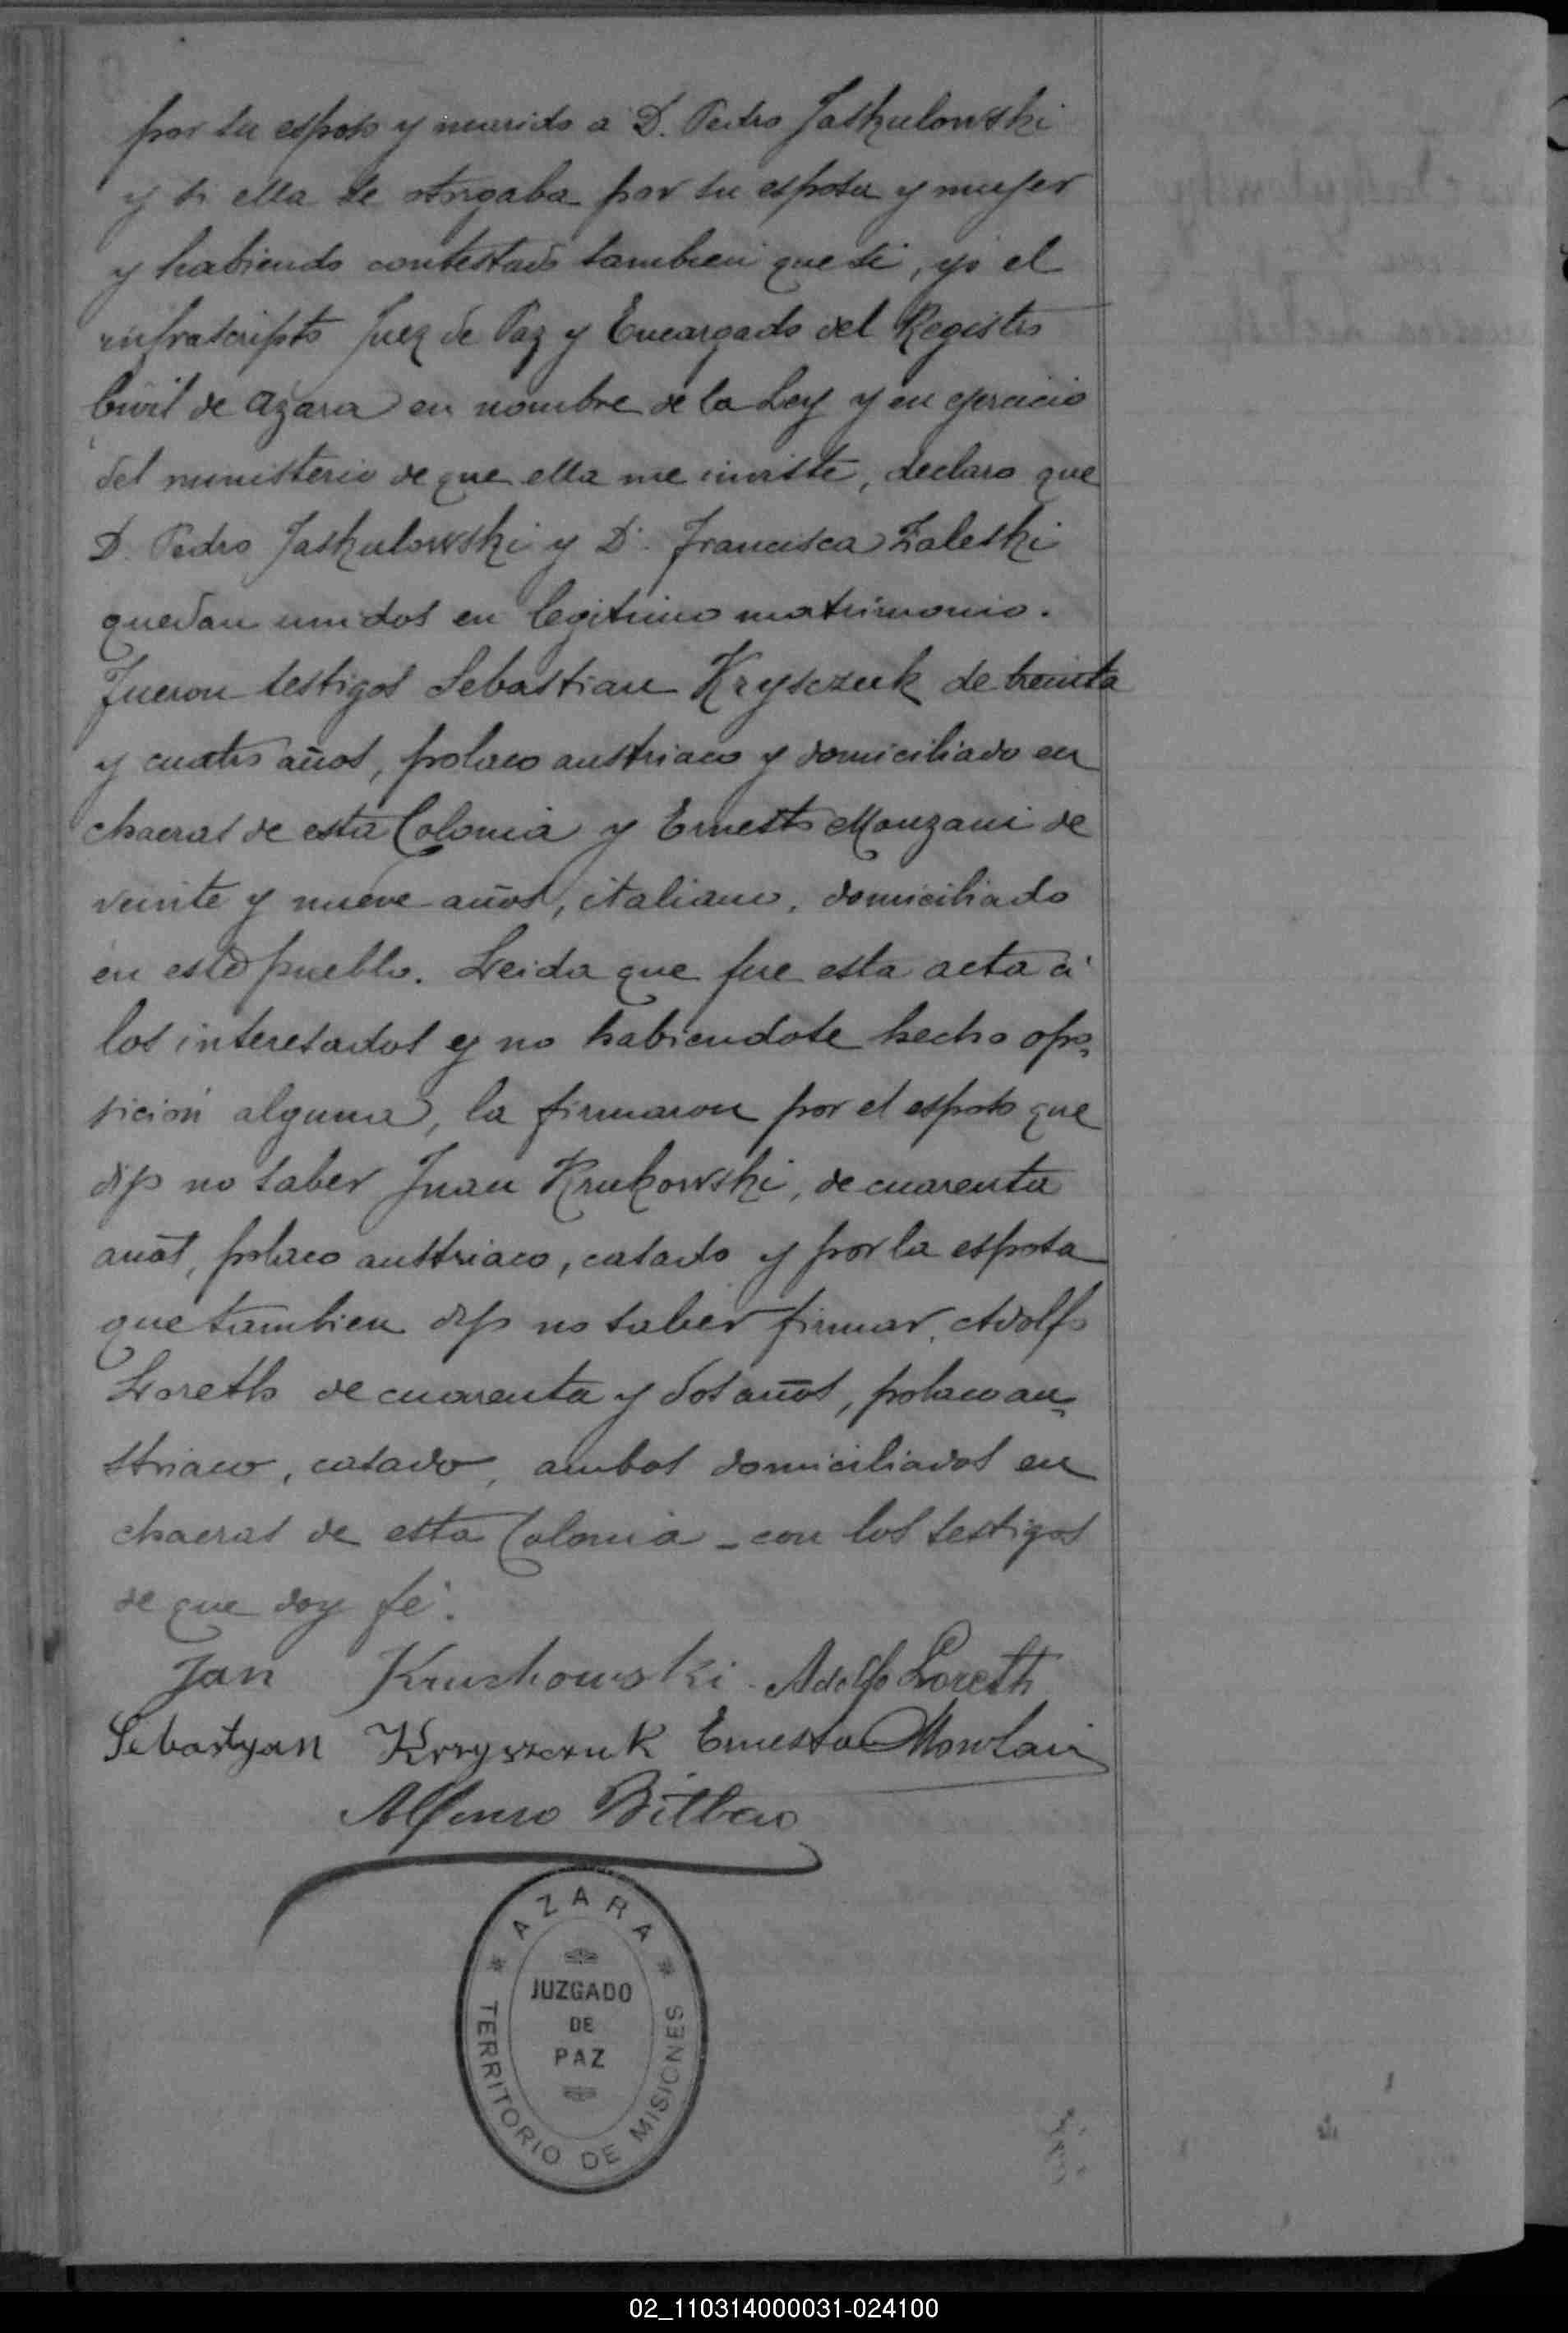 por su esposo y marido a D. Pedro Jaskulowski
y si ella se otorgaba por su esposa y mujer
y habiendo contestado tambien que si, yo el
infrascripto Juez de Paz y Encargado del Registro
Civil de Azara en nombre de la Ley y en ejercicio
del ministerio de que ella me inviste, declaro que
D. Pedro Jaskulowski y Dª. Francisca Zaleski
quedan unidos en legitimo matrimonio.
Fueron testigos Sebastian Krysczuk de treinta
y cuatro años, polaco austriaco y domiciliado en
chacras de esta Colonia y Ernesto Monzani de
veinte y nueve años, italiano, domiciliado
en este pueblo. Leida que fue esta acta á
los interesados y no habiendose hecho opo-
sición alguna, la firmaron por el esposo que
dijo no saber Juan Krukowski, de cuarenta
años, polaco austriaco, casado y por la esposa
que tambien dijo no saber firmar, Adolfo
Loreth de cuarenta y dos años, polaco au-
striaco, casado, ambos domiciliados en
chacras de esta Colonia - con los testigos
de que doy fé.
Jan Kruchowski Adolfo Loreth
Sebastyan Krzyszczuk Ernesto
Alfonso Bilbao
AZARA
JUZGADO
DE
PAZ
TERRITORIO DE MISIONES
02_110314000031-024100